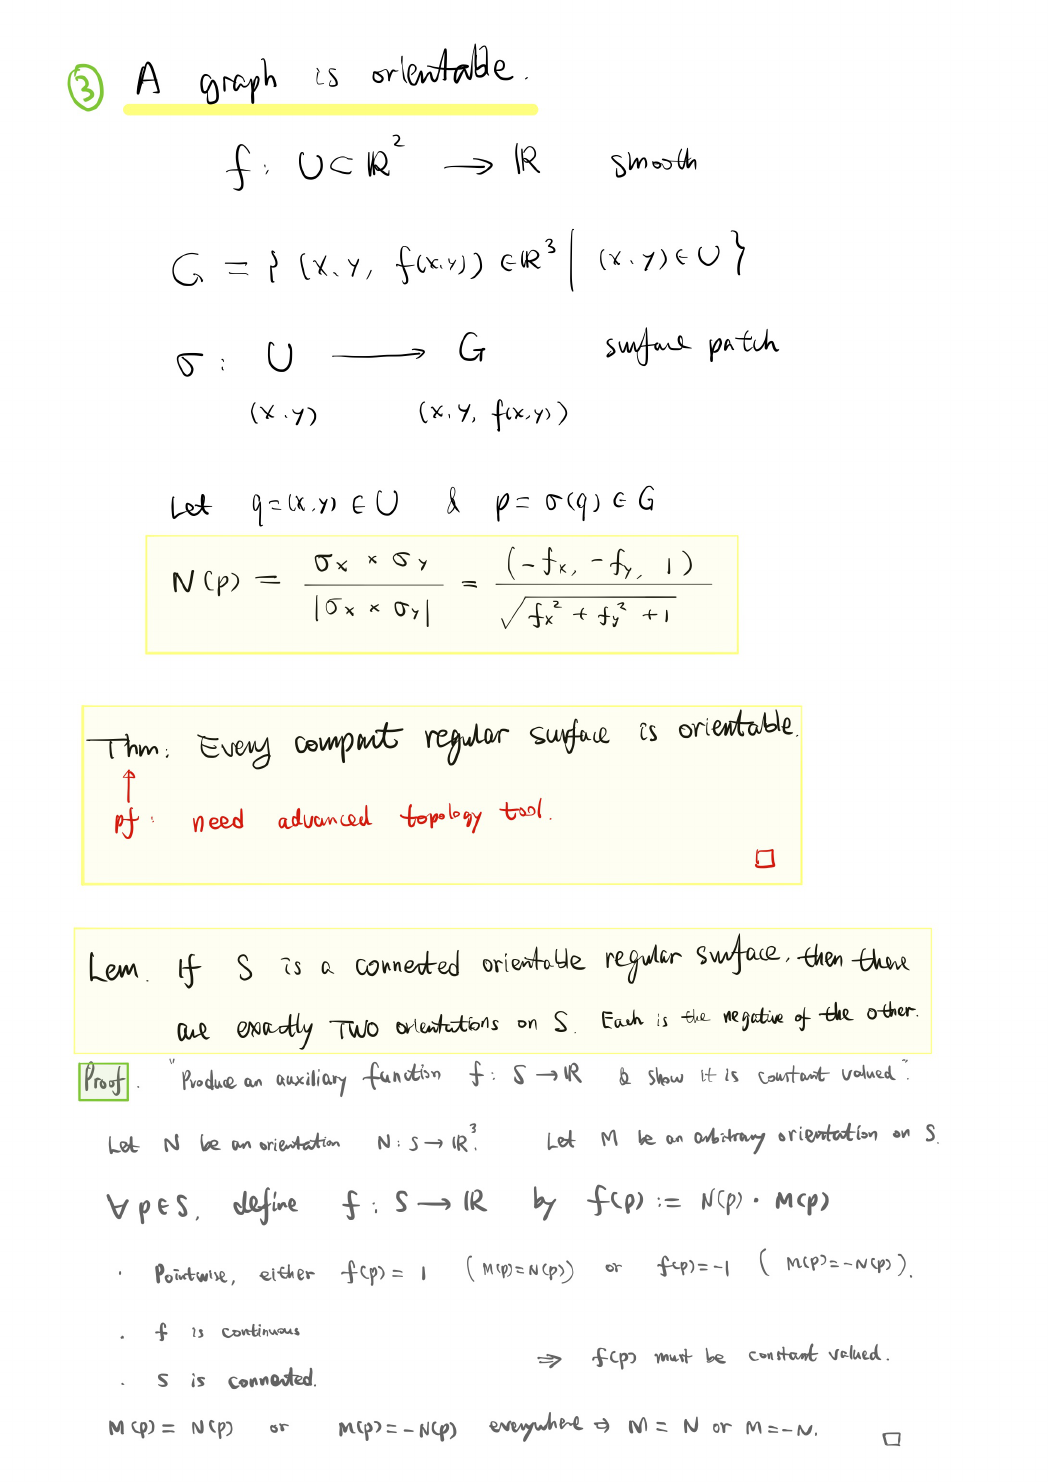 ③ A graph is orientable.
f: U⊂ℝ² → ℝ smooth
G = { (x,y, f(x,y)) ∈ℝ³ | (x,y)∈U }
σ: U → G surface patch
(x,y) (x,y, f(x,y))
Let q=(x,y) ∈ U & p = σ(q) ∈ G
N(p) = σx × σy / |σx × σy| = (-fx, -fy, 1) / √(fx² + fy² + 1)
Thm: Every compact regular surface is orientable.
↑
pf: need advanced topology tool.
□
Lem. If S is a connected orientable regular surface, then there
are exactly TWO orientations on S. Each is the negative of the other.
Proof. "Produce an auxiliary function f: S → ℝ & show it is constant valued".
Let N be an orientation N: S → ℝ³. Let M be an arbitrary orientation on S.
∀ p∈S, define f: S → ℝ by f(p) := N(p) · M(p)
· Pointwise, either f(p) = 1 (M(p)=N(p)) or f(p)=-1 (M(p)=-N(p)).
· f is continuous
⇒ f(p) must be constant valued.
· S is connected.
M(p) = N(p) or M(p)=-N(p) everywhere ⇒ M = N or M=-N. □